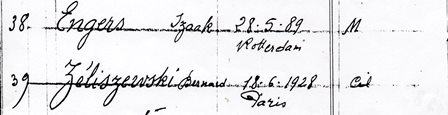 38. Engers Izaak 28.5.89 M
Rotterdam
39 Zéliszewski Bernard 18.6.1928 Cil
Paris